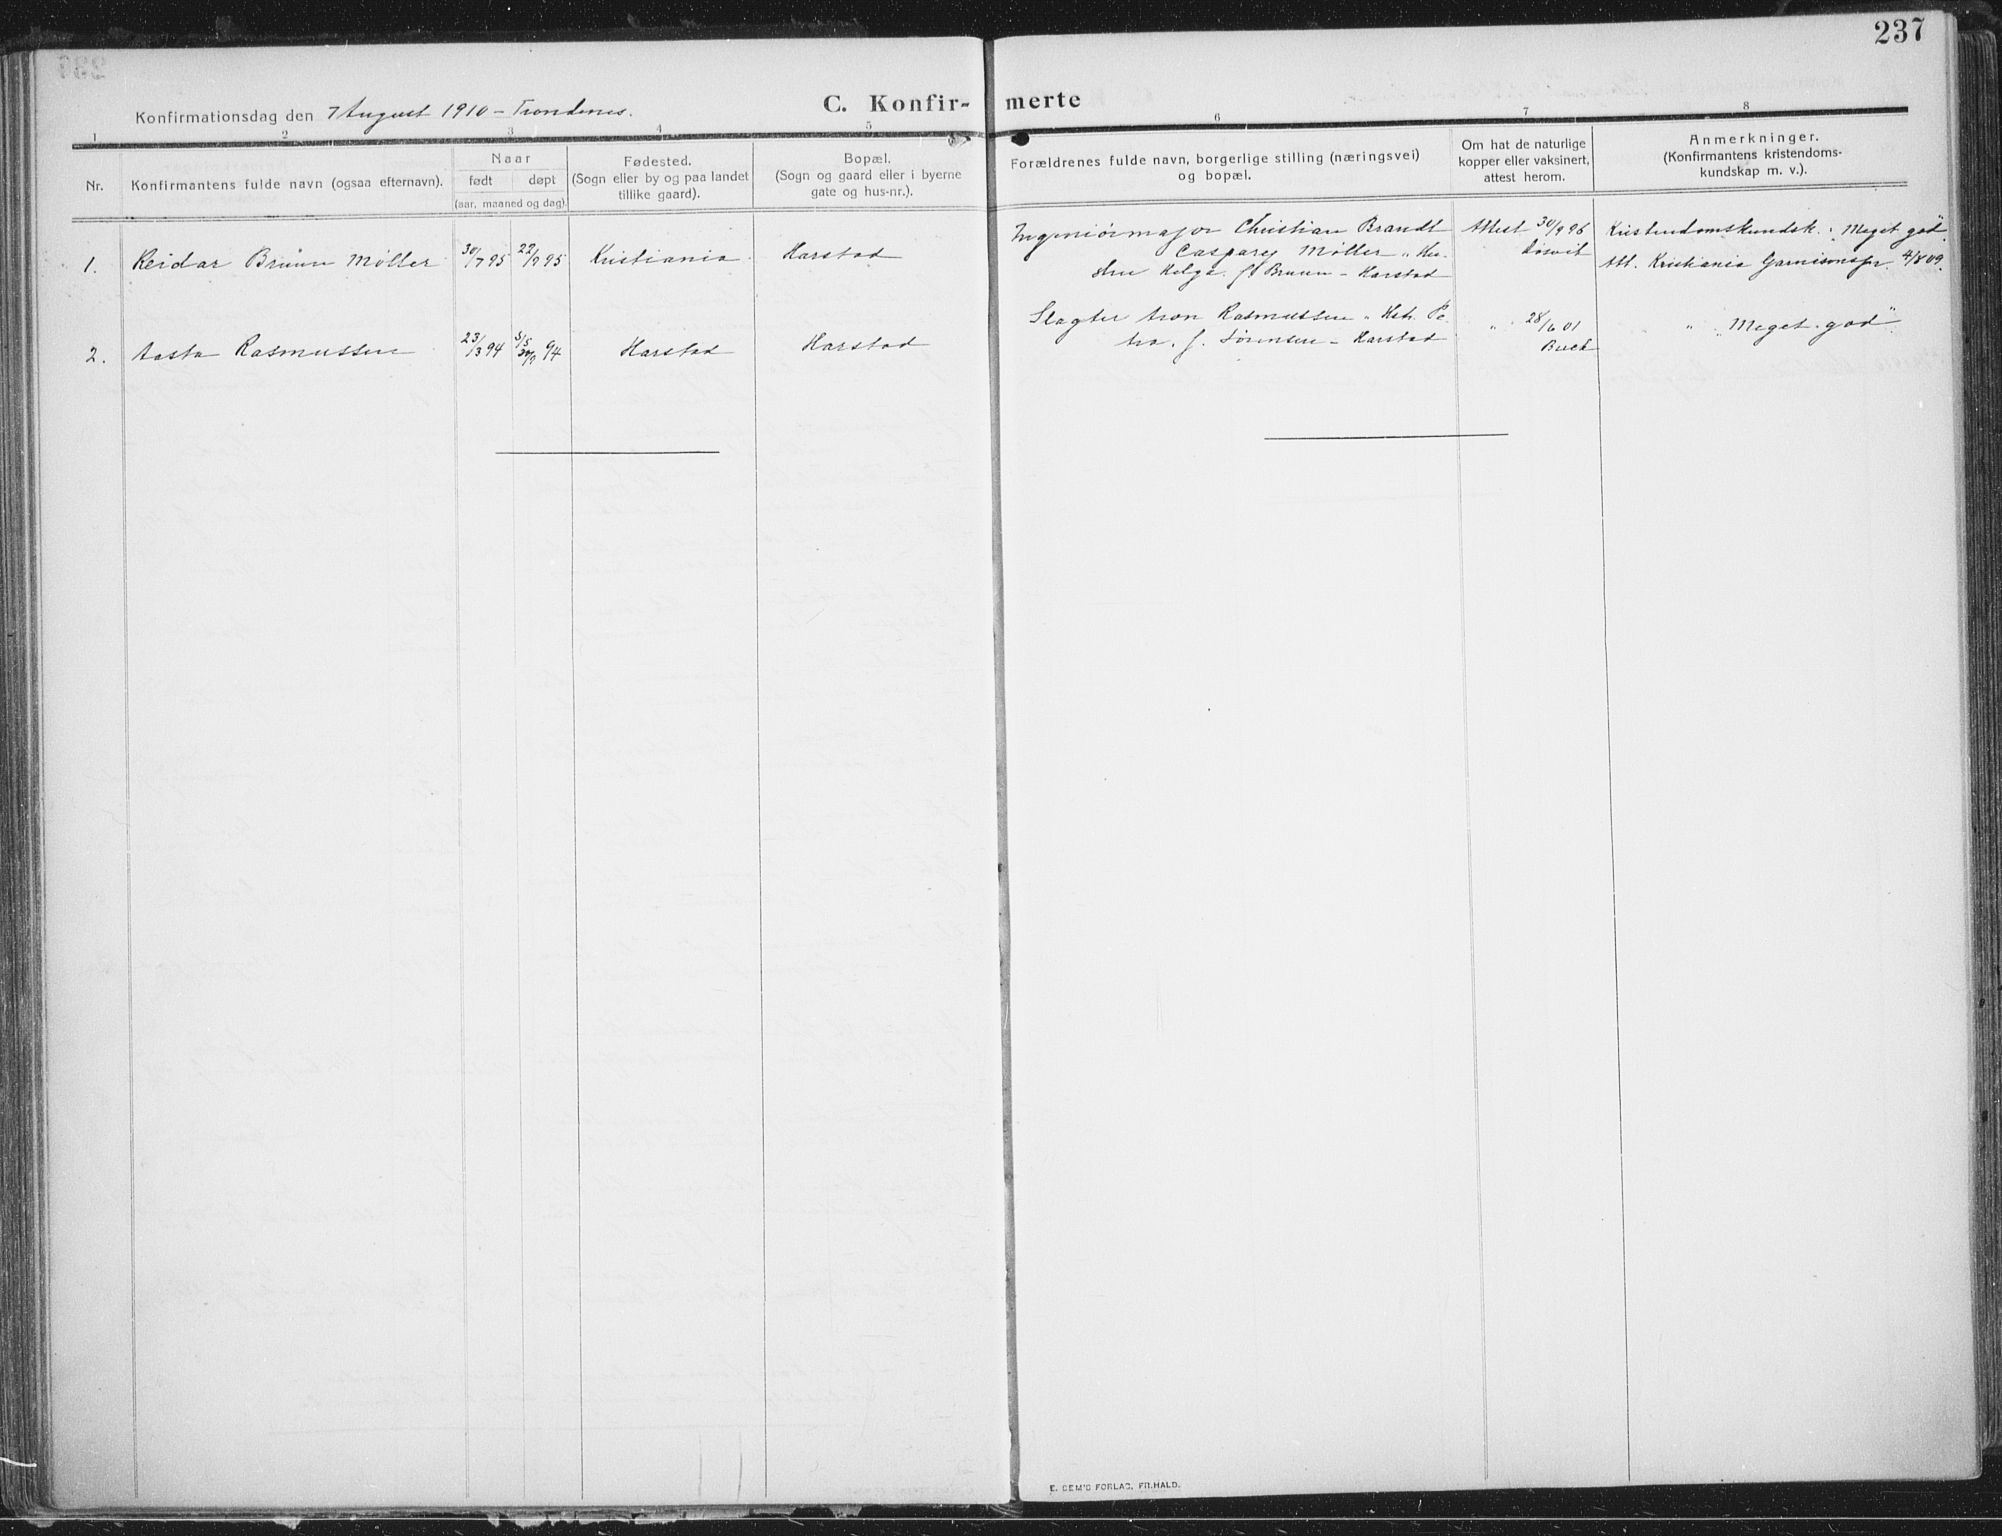 237
Konfirmationsdag den 7 August 1910 – Trondenes.
C. Konfir- merte
1 2 3 4 5 6 7 8
Nr.
Konfirmantens fulde navn (ogsaa efternavn).
Naar
født døpt
(aar, maaned og dag).
Fødested.
(Sogn eller by og paa landet
tillike gaard).
Bopæl.
(Sogn og gaard eller i byerne
gate og hus-nr.).
Forældrenes fulde navn, borgerlige stilling (næringsvei)
og bopæl.
Om hat de naturlige
kopper eller vaksinert,
attest herom.
Anmerkninger.
(Konfirmantens kristendoms-
kundskap m. v.).
1. Reidar Bruun Møller 30/7 95 22/9 95 Kristiania Harstad
Ingeniörmajor Christian Brandt
Caspary Møller „ Hu-
stru Helga f. Bruun – Harstad
Attest 30/9 96
Kristendomskundsk. „ Meget god
Att. Kristiania Garnisonspr. 4/8 09.
2. Aasta Rasmussen 23/3 94 94 Harstad Harstad
Slagter Aron Rasmussen „ Hst. Pe-
tra f. Sörensen – Harstad
„ 28/6 01
„ „ Meget god"
E. SEM'S FORLAG, FR.HALD.